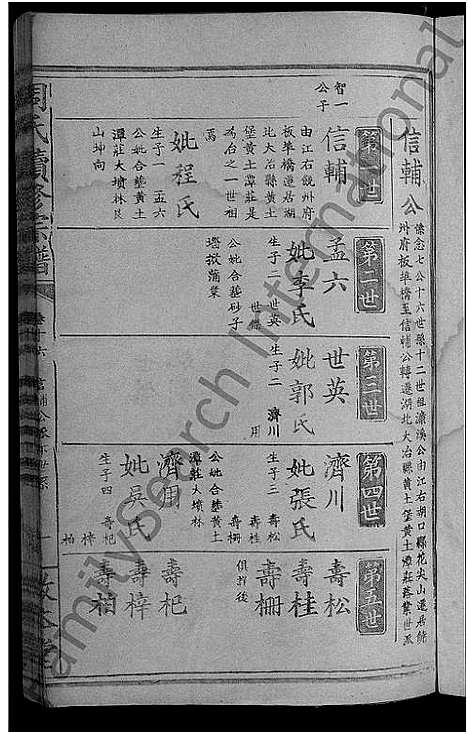 信輔公
懷念七公十六世孫十二世祖濂溪公由江右湖口縣花尖山遷居饒
州府板㘰橋至信輔公轉遷湖北大冶縣黃土堡黃土潭莊落業世系
第一世
智一
公子
信輔
由江右饒州府
板㘰橋遷居湖
北大冶縣黃土
堡黃土潭莊是
為冶之一世祖
妣程氏
生子一 孟六
公妣合墓黃土
潭莊大墳林艮
山坤向
第二世
孟六
妣李氏
生子二 世英
世傑
公妣合墓砂子
第三世
世英
妣郭氏
生子二 濟川
用
第四世
濟川
妣張氏
生子三 壽松
壽桂
壽柵
公妣合墓黃土
潭莊大墳林
濟用
妣吳氏
生子四 壽杞
梓
柏
第五世
壽松
壽桂
壽柵
俱打後
壽杞
壽梓
壽柏
周氏續修宗譜
FamilySearch International